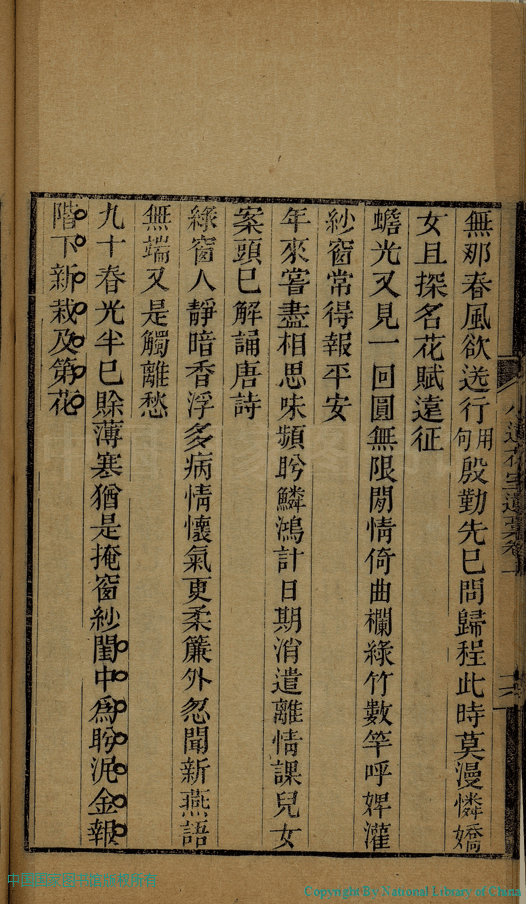 無那春風欲送行用句殷勤先巳問歸程此時莫漫憐嬌
女且探名花賦遠征
蟾光又見一回圓無限閒情倚曲欄綠竹數竿呼婢灌
紗窗常得報平安
年來嘗盡相思味頻盻鱗鴻計日期消遣離情課兒女
案頭巳解誦唐詩
綠窗人靜暗香浮多病情懷氣更柔簾外忽聞新燕語
無端又是觸離愁
九十春光半巳賒薄寒猶是掩窗紗閨中為盻泥金報
階下新栽及第花
中国国家图书馆版权所有
Copyright By National Library of China